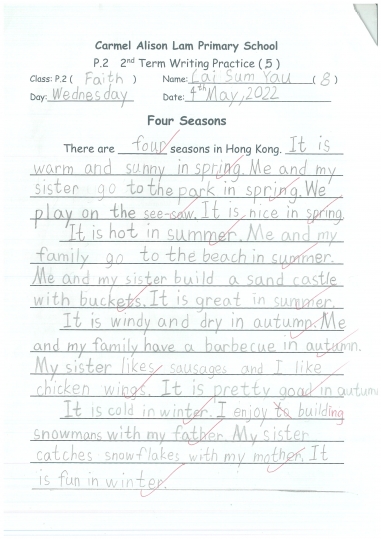 Carmel Alison Lam Primary School
P.2 2nd Term Writing Practice (5)
Class: P.2 ( Faith ) Name: Lai Sum Yau ( 8 )
Day: Wednesday Date: 4th May, 2022
Four Seasons
There are four seasons in Hong Kong. It is
warm and sunny in spring. Me and my
sister go to the park in spring. We
play on the see-saw. It is nice in spring.
It is hot in summer. Me and my
family go to the beach in summer.
Me and my sister build a sand castle
with buckets. It is great in summer.
It is windy and dry in autumn. Me
and my family have a barbecue in autumn.
My sister likes sausages and I like
chicken wings. It is pretty good in autumn
It is cold in winter. I enjoy to building
snowmans with my father. My sister
catches snowflakes with my mother. It
is fun in winter.